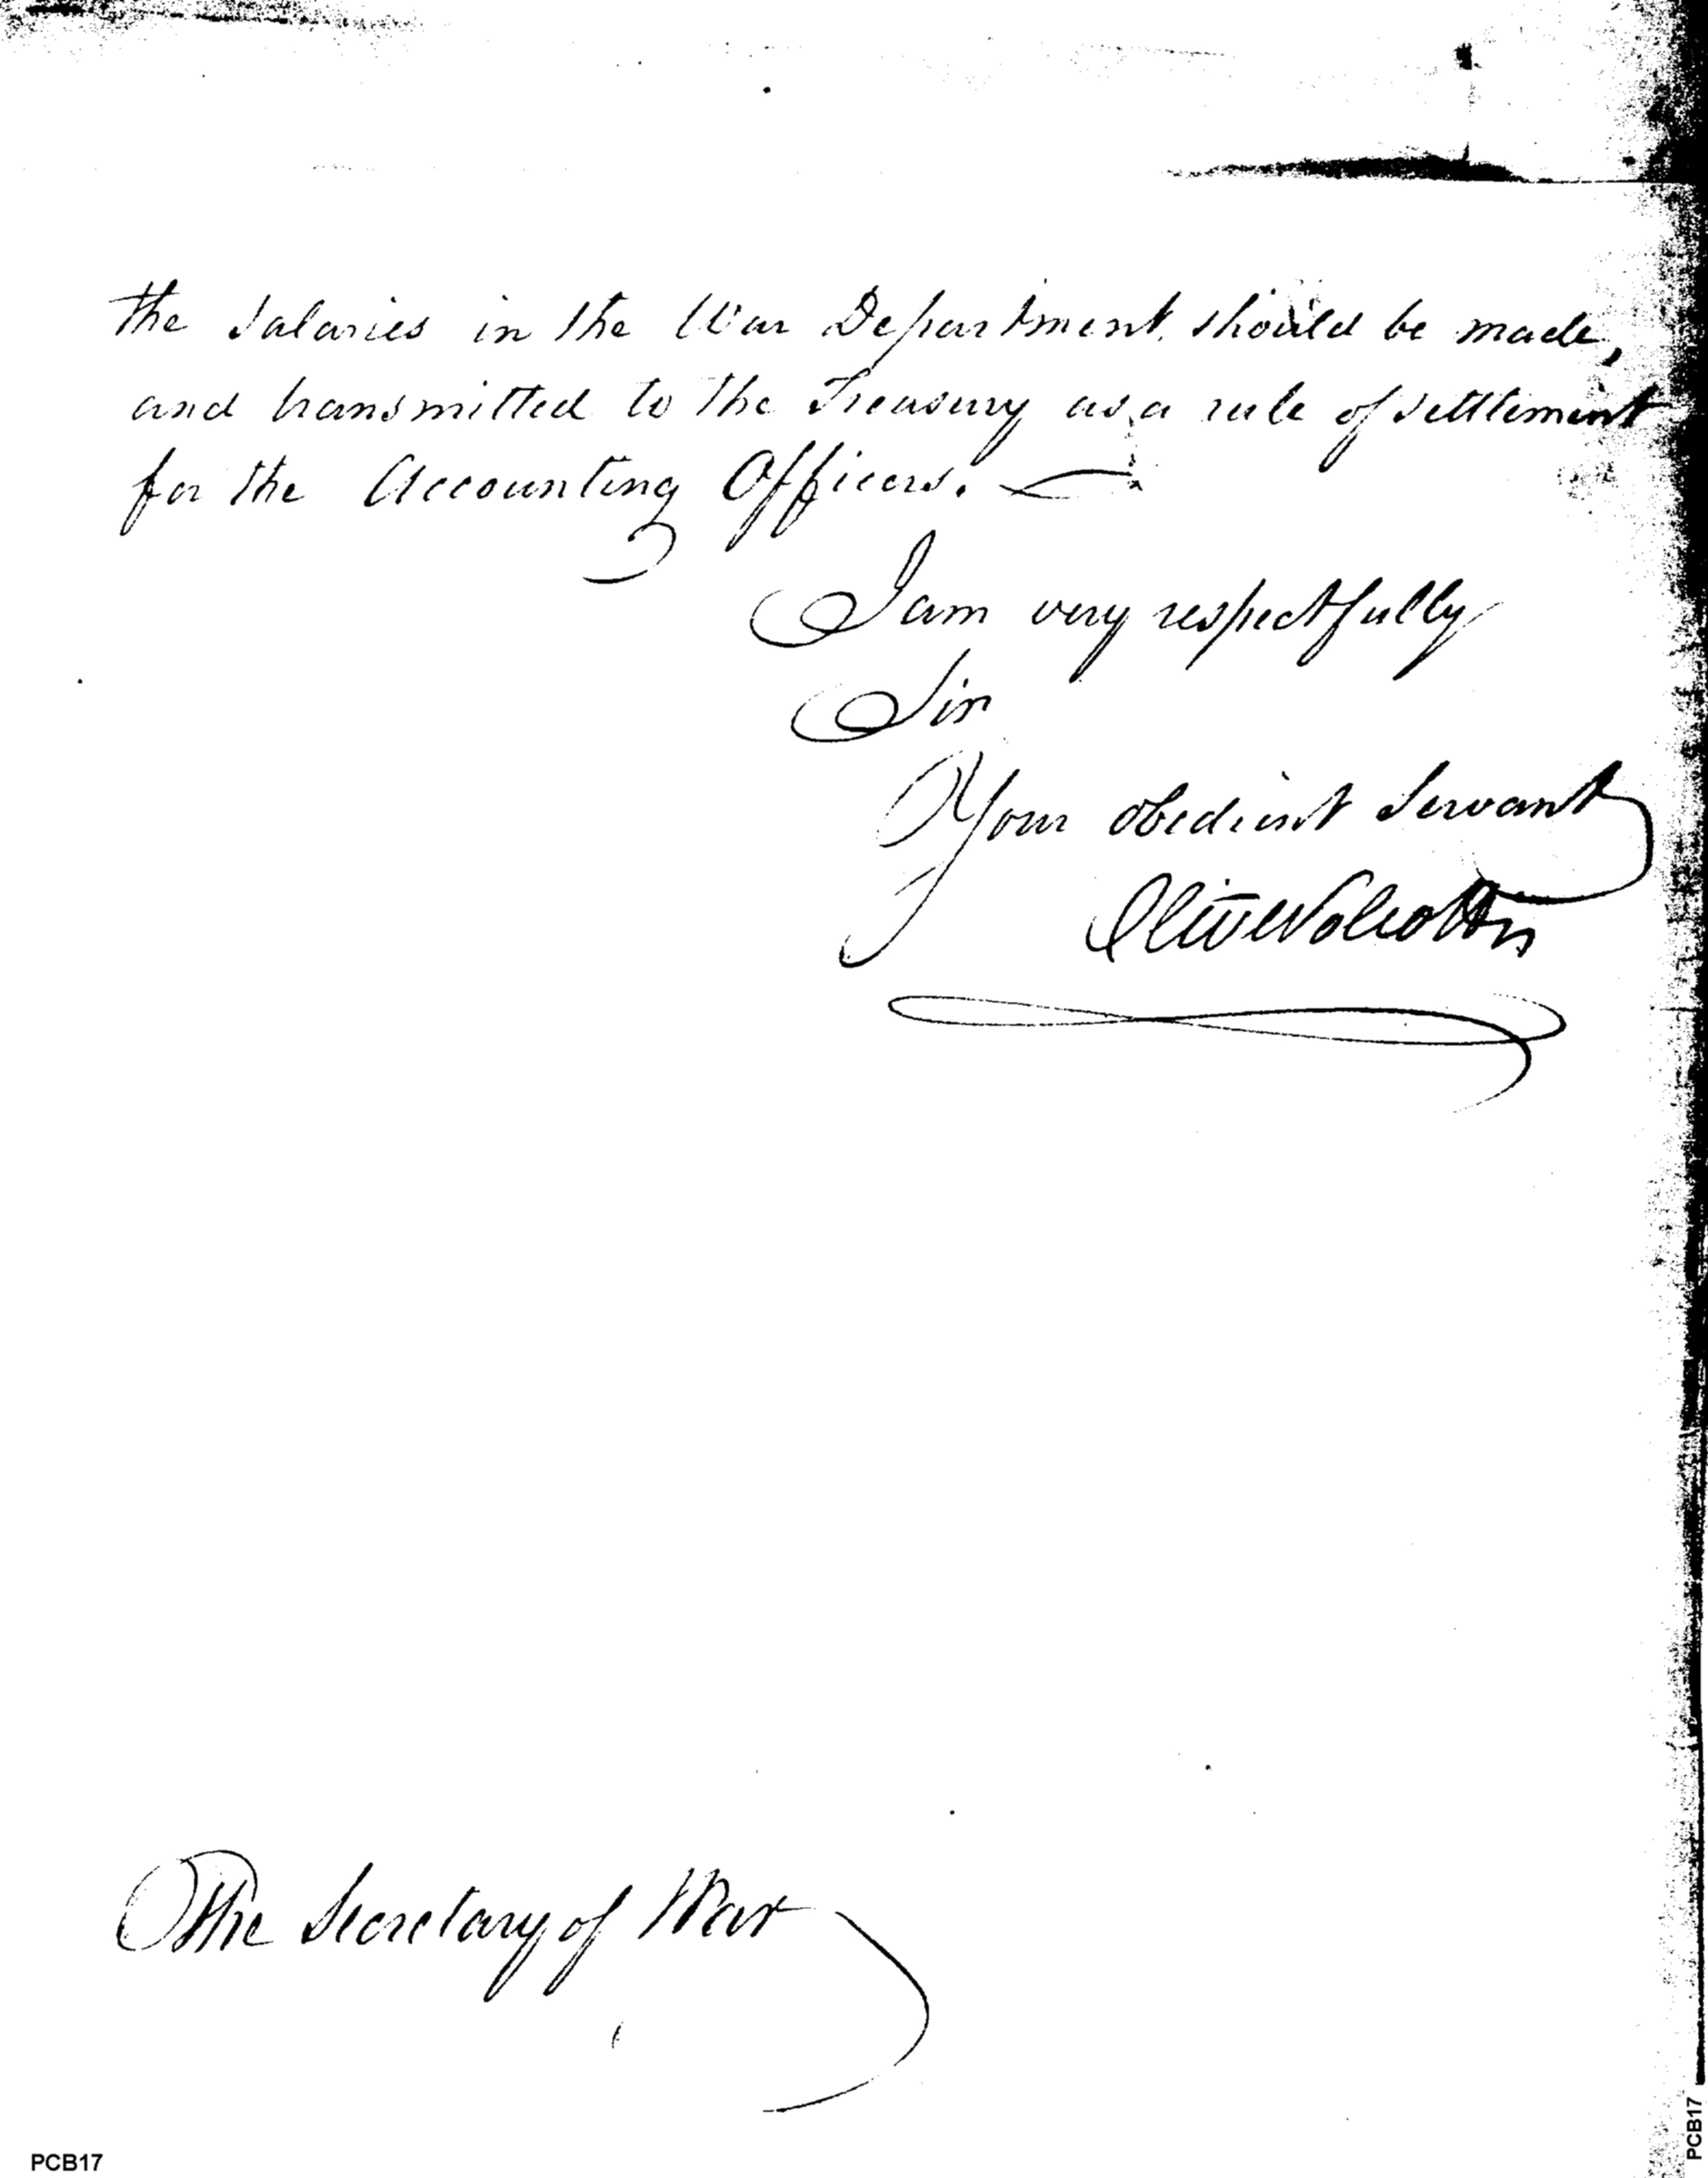 the Salaries in the War Department should be made,
and transmitted to the Treasury as a rule of settlement
for the Accounting Officers. —
I am very respectfully
Sir
Your obedient Servant
Oliv Wolcott Jr
The Secretary of War
PCB17
PCB17